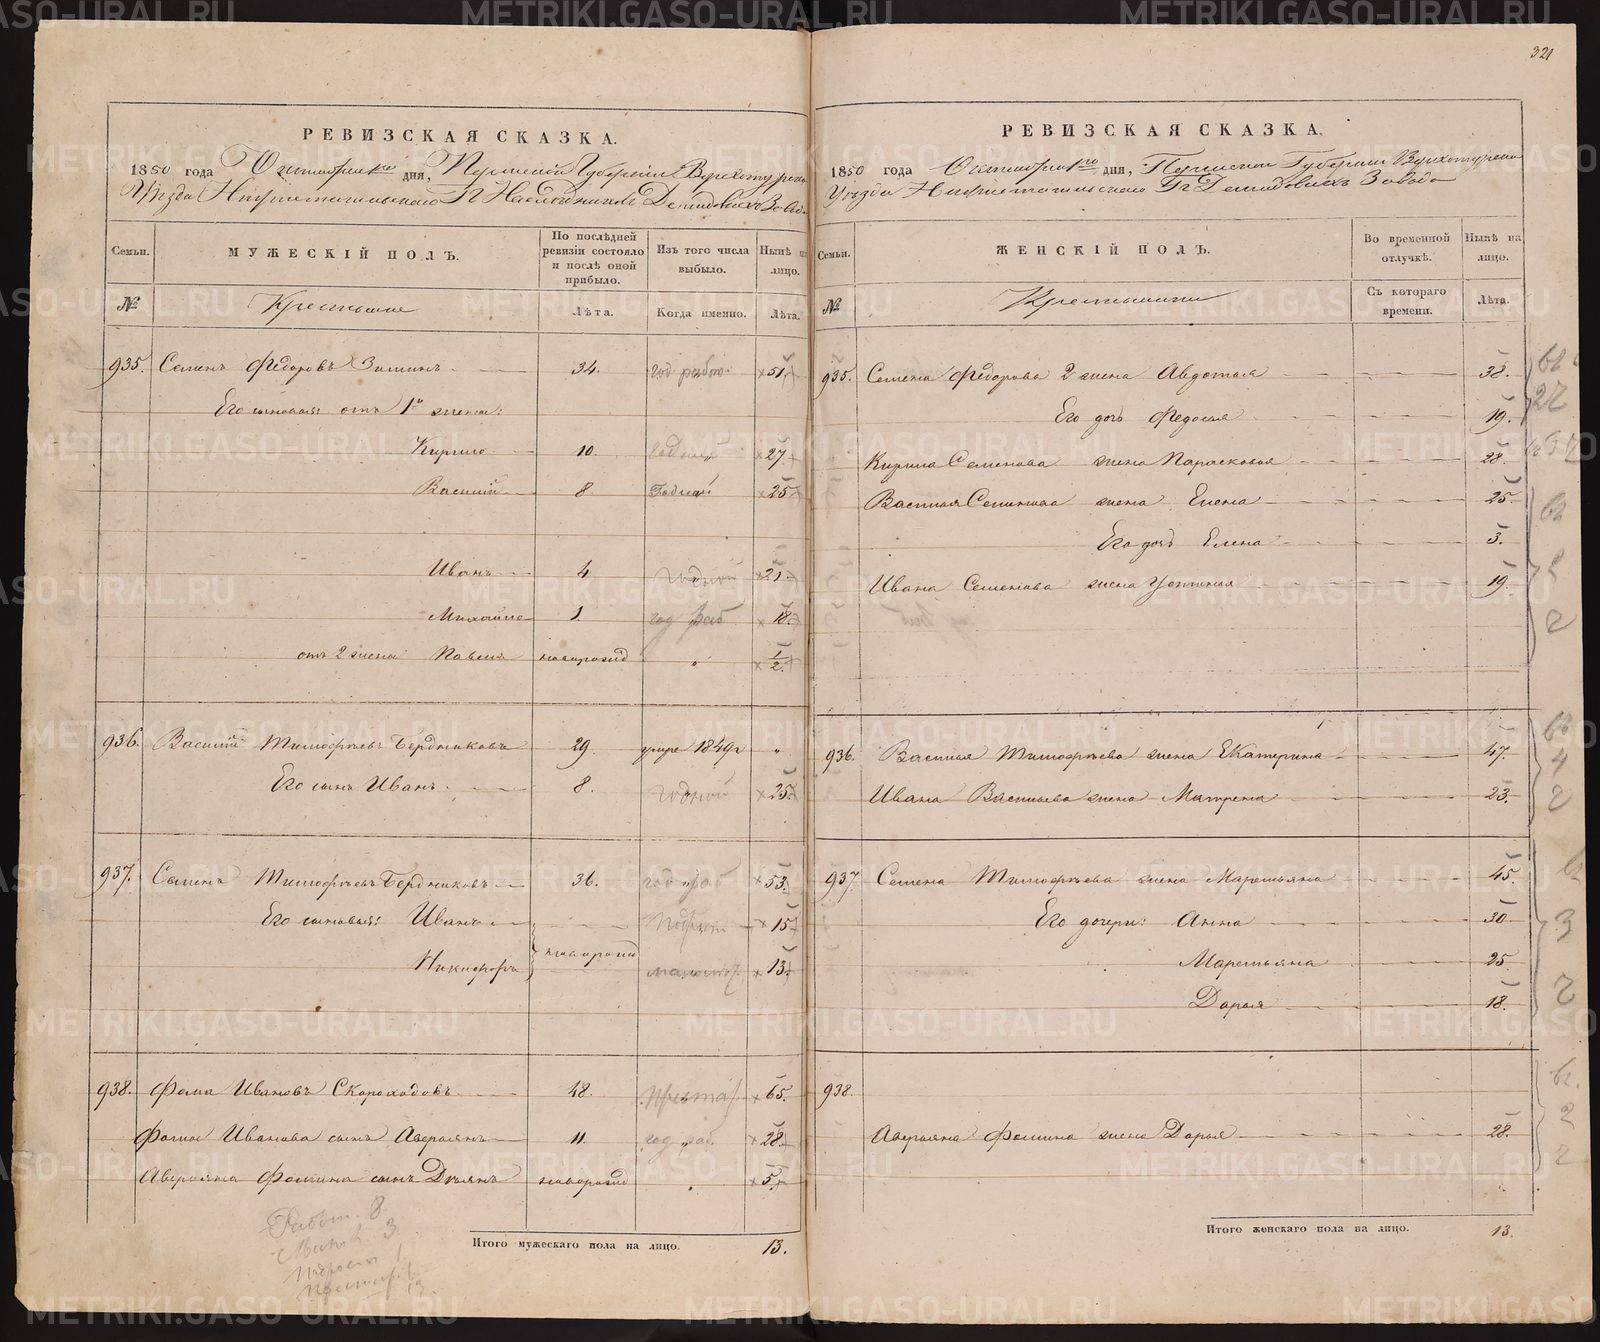 321
РЕВИЗСКАЯ СКАЗКА.
1850 года Октября 1го дня, Пермской Губернии Верхотурско
Уѣзда Нижнетагильскаго Гг Наслѣдниковъ Демидовыхъ Завод
Семьи. МУЖЕСКІЙ ПОЛЪ. По послѣдней ревизіи состояло и послѣ оной прибыло. Изъ того числа выбыло. Нынѣ на лицо.
№ Крестьяне Лѣта. Когда именно. Лѣта.
935. Семенъ Федоровъ Зиминъ 34. год работ. 51.
Его сыновья: отъ 1й жены:
Кирило 10. годной 27
Василій 8 Годной 25
Иванъ 4 годной 21.
Михайло 1. год раб 18.
отъ 2 жены Павелъ новорожд „ 1/2.
936. Василій Тимофѣевъ Бердниковъ 29. умре 1849 г „
Его сынъ Иванъ 8. годной 25.
937. Семенъ Тимофѣевъ Бердниковъ 36. год раб 53.
Его сыновья: Иванъ 15
новорожд
Никифоръ 13.
938. Фома Ивановъ Скороходовъ 48. Преста. 65.
Фомы Иванова сынъ Аверьянъ 11. год. раб. 28.
Аверьяна Фомина сынъ Демьянъ новорожд „ 5.
Работ. 8
Малол 3
1
1
13.
Итого мужескаго пола на лицо. 13.
РЕВИЗСКАЯ СКАЗКА.
1850 года Октября 1го дня, Пермской Губерніи Верхотурско
Уѣзда Нижнетагильскаго Гг Демидовыхъ Завода
Семьи. ЖЕНСКІЙ ПОЛЪ. Во временной отлучкѣ. Нынѣ на лицо.
№ Крестьянки Съ котораго времени. Лѣта.
935. Семена Федорова 2 жена Авдотья 38.
Его дочь Федосья 19.
Кирила Семенова жена Парасковья 28.
Василья Семенова жена Елена 25.
Его дочь Елена 3.
Ивана Семенова жена Устинья 19.
936. Василья Тимофѣева жена Екатерина 47.
Ивана Васильева жена Матрена 23.
937. Семена Тимофѣева жена Маремьяна 45.
Его дочери: Анна 30
Маремьяна 25.
Дарья 18.
938.
Аверьяна Фомина жена Дарья 28.
Итого женскаго пола на лицо. 13.
METRIKI.GASO-URAL.RU